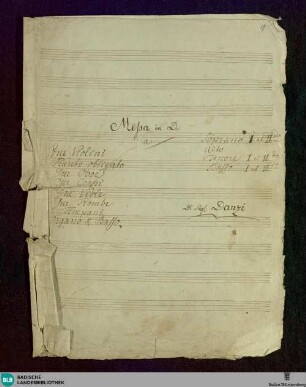 Messa in D
a
Due Violini
Flauto obligato
Due Oboe
Due Corni
Due Viole
Due Trombe
Timpani
Organo e Basso
Soprano I et II
Alto
Tenore I et II
Basso I et II
Danzi
BLB
BADISCHE
LANDESBIBLIOTHEK